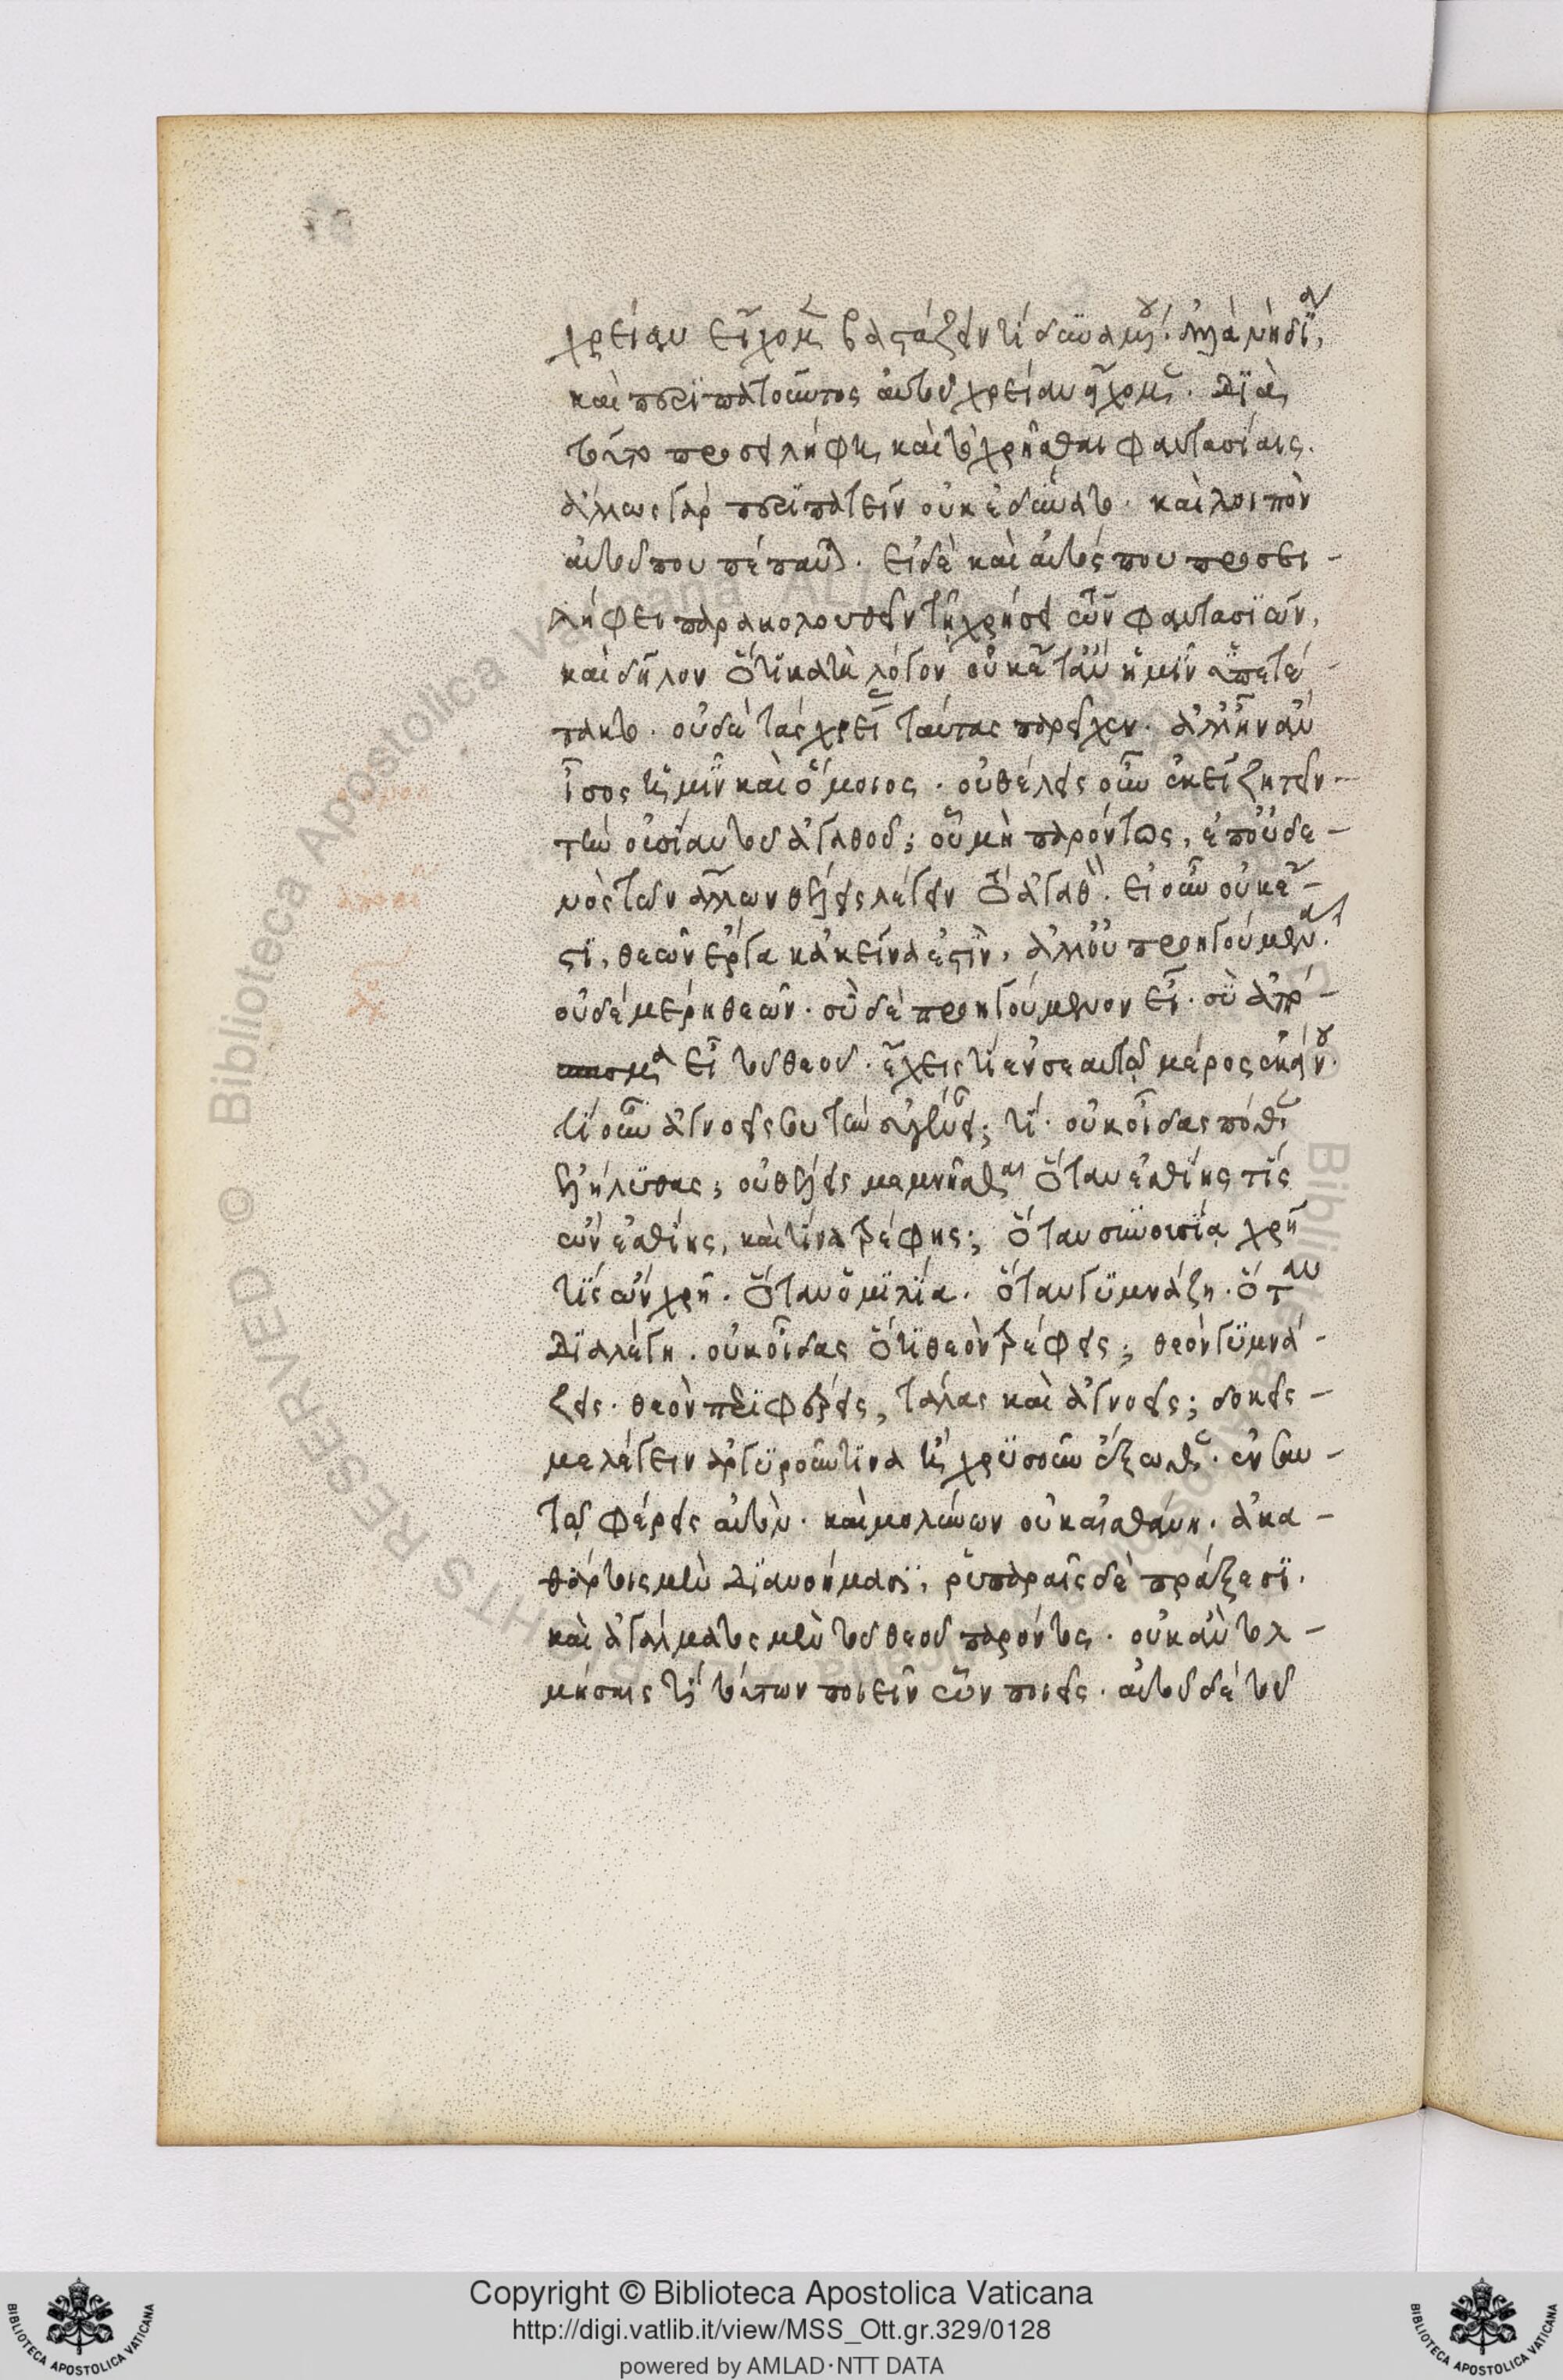 χρείαν εἴχομεν βαστάζειν τί δυναμένου. ἀλλὰ μὴν δὴ,
καὶ περιπατοῦντος αὐτοῦ χρείαν εἴχομεν. διὰ
τοῦτο προσείληφε, καὶ τὸ χρῆσθαι φαντασίαις.
ἄλλως γὰρ περιπατεῖν οὐκ ἐδύνατο. καὶ λοιπὸν
αὐτοῦ που πέπαυται. εἰ δὲ καὶ αὐτός που προσει-
λήφει παρακολουθεῖν τῇ χρήσει τῶν φαντασιῶν,
καὶ δῆλον ὅτι κατὰ λόγον οὐκέτ' ἂν ἡμῖν ὑπετέ-
τακτο. οὐδὲ τὰς χρείας ταύτας παρεῖχεν. ἀλλ' ἦν ἂν
ἴσος ἡμῖν καὶ ὅμοιος. οὐ θέλεις οὖν ἐκεῖ ζητεῖν
τὴν οὐσίαν τοῦ ἀγαθοῦ; οὗ μὴ παρόντος, ἐπ' οὐδε-
νὸς τῶν ἄλλων θέλεις λέγειν τὸ ἀγαθόν. τί οὖν οὐκ ἔ-
στι, θεῶν ἔργα κἀκεῖνα ἐστὶν, ἀλλ' οὐ προηγούμενα.
οὐδὲ μέρη θεῶν. σὺ δὲ προηγούμενον εἶ. σὺ ἀπό-
σπασμα εἶ τοῦ θεοῦ. ἔχεις τι ἐν σεαυτῷ μέρος ἐκείνου.
τί οὖν ἀγνοεῖς σου τὴν συγγένειαν; τί οὐκ οἶδας πόθεν
ἐλήλυθας; οὐ θέλεις μεμνῆσθαι ὅταν ἐσθίῃς τίς
ὢν ἐσθίῃς, καὶ τίνα τρέφῃς; ὅταν συνουσίᾳ χρῇ
τίς ὢν χρῇ. ὅταν ὁμιλίᾳ. ὅταν γυμνάζῃ. ὅταν
διαλέγῃ. οὐκ οἶδας ὅτι θεὸν τρέφεις; θεὸν γυμνά-
ζεις. θεὸν περιφέρεις, τάλας καὶ ἀγνοεῖς; δοκεῖς
με λέγειν ἀργυροῦν τινὰ ἢ χρυσοῦν ἔξωθεν. ἐν σαυ-
τῷ φέρεις αὐτὸν. καὶ μολύνων οὐκ αἰσθάνῃ. ἀκα-
θάρτοις μὲν διανοήμασι, ῥυπαραῖς δὲ πράξεσι.
καὶ ἀγάλματος μὲν τοῦ θεοῦ παρόντος. οὐκ ἂν τολ-
μήσαις τι τούτων ποιεῖν ὧν ποιεῖς. αὐτοῦ δὲ τοῦ
Copyright © Biblioteca Apostolica Vaticana
http://digi.vatlib.it/view/MSS_Ott.gr.329/0128
powered by AMLAD·NTT DATA